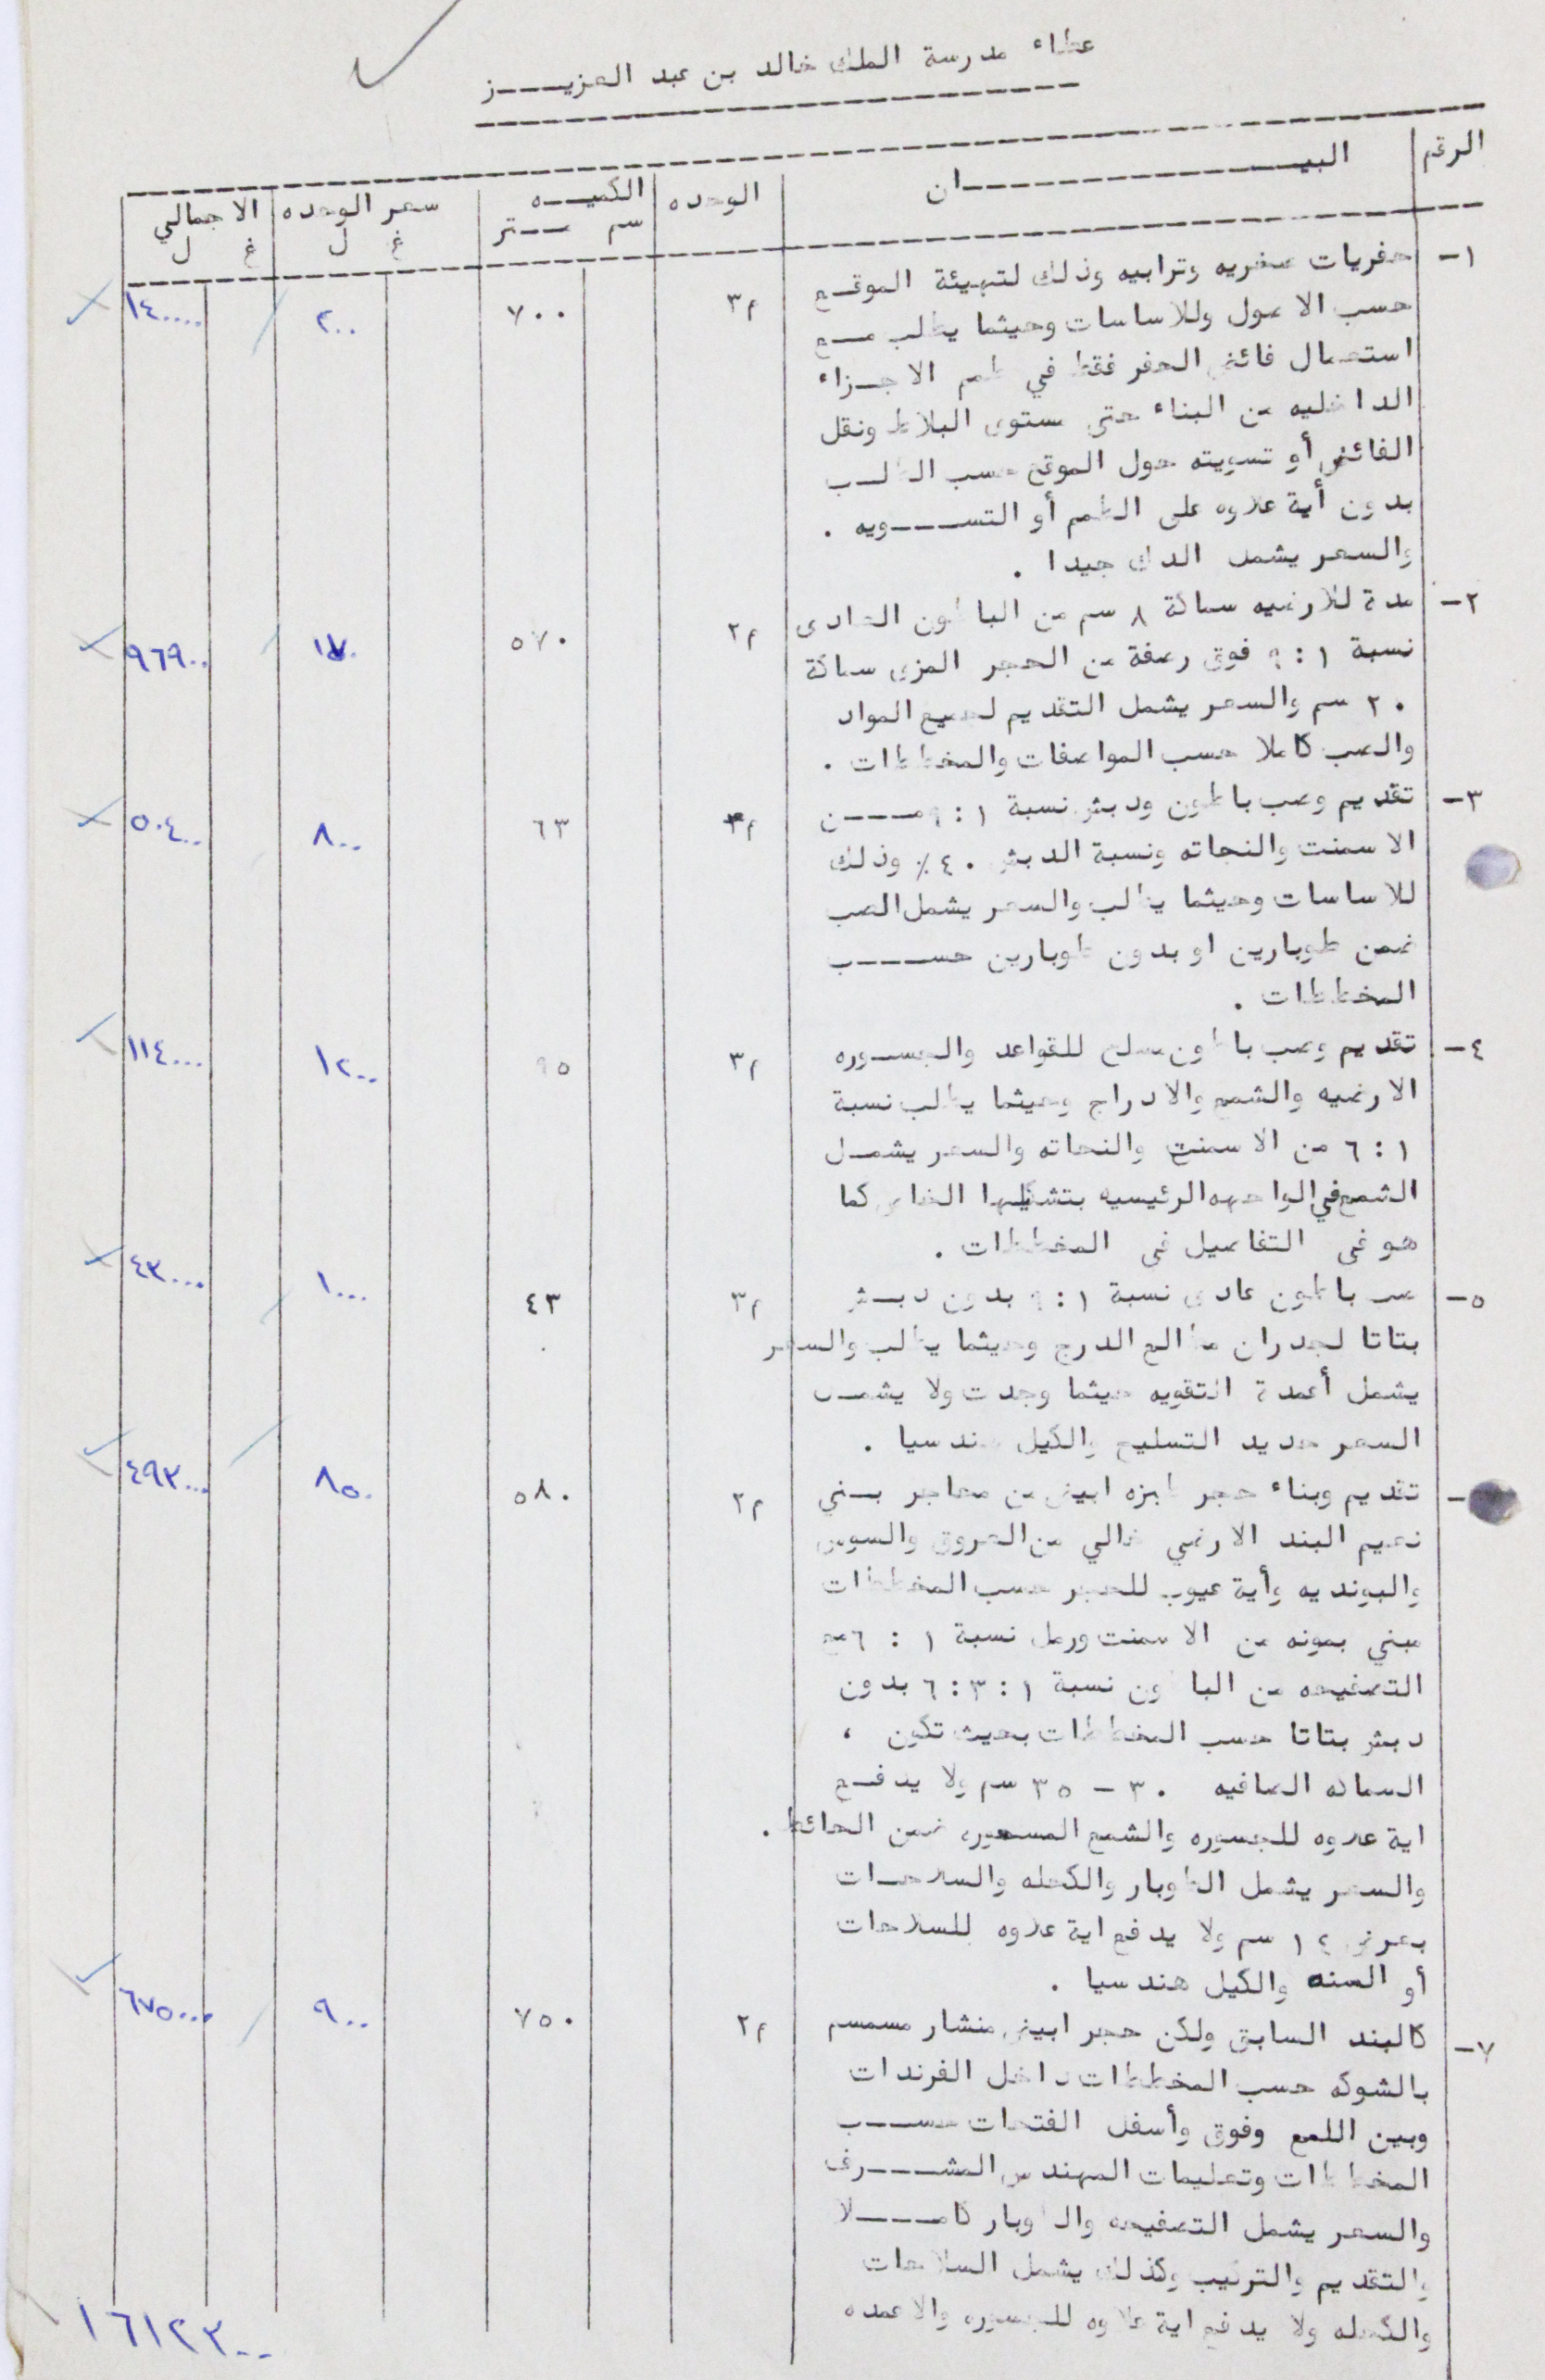 عطاء مدرسة الملك خالد بن عبد العزيـــز
الرقم البيـــــــان الوحده الكميـــه سعر الوحده الاجمالي
سم متر غ ل غ ل
١- حفريات صخريه وترابيه وذلك لتهيئة الموقـع م٣ ٧٠٠ ٢٠٠ ١٤٠٠٠٠
حسب الاصول وللاساسات وحيثما يطلب مــع
استعمال فائض الحفر فقط في طمم الاجـزاء
الداخليه من البناء حتى مستوى البلاط ونقل
الفائض أو تسويته حول الموقع حسب الطلـب
بدون أية علاوه على الطمم أو التســـويه .
والسعر يشمل الدك جيدا .
٢- مدة للارضيه سماكة ٨ سم من الباطون العادى م٢ ٥٧٠ ١٧٠ ٩٦٩٠٠
نسبة ١ : ٩ فوق رصفة من الحجر المزى سماكة
٢٠ سم والسعر يشمل التقديم لجميع المواد
والصب كاملا حسب المواصفات والمخططات .
٣- تقديم وصب باطون ودبش نسبة ١ : ٩ مــــن م٣ ٦٣ ٨٠٠ ٥٠٤٠٠
الاسمنت والنحاته ونسبة الدبش ٤٠ ٪ وذلك
للاساسات وحيثما يطلب والسعر يشمل الصب
ضمن طوبارين او بدون طوبارين حســـب
المخططات .
٤- تقديم وصب باطون مسلح للقواعد والجســوره م٣ ٩٥ ١٢٠٠ ١١٤٠٠٠
الارضيه والشمع والادراج وحيثما يطلب نسبة
١ : ٦ من الاسمنت والنحاته والسعر يشمــل
الشمع في الواجهه الرئيسيه بتشكيلها الخاص كما
هو في التفاصيل في المخططات .
٥- صب باطون عادى نسبة ١ : ٩ بدون دبــش م٣ ٤٣ ١٠٠٠ ٤٣٠٠٠
بتاتا لجدران مطالع الدرج وحيثما يطلب والسعر
يشمل أعمدة التقويه حيثما وجدت ولا يشمــل
السعر حديد التسليح والكيل هندسيا .
- تقديم وبناء حجر طبزه ابيض من محاجر بــني م٢ ٥٨٠ ٨٥٠ ٤٩٣٠٠٠
نعيم البند الارضي خالي من العروق والسوس
والبونديه وأية عيوب للحجر حسب المخططات
مبني بمونه من الاسمنت ورمل نسبة ١ : ٦ مع
التصفيحه من الباطون نسبة ١ : ٣ : ٦ بدون
دبش بتاتا حسب المخططات بحيث تكون ،
السماكه الصافيه ٣٠ - ٣٥ سم ولا يدفــع
اية علاوه للجسوره والشمع المسحوره ضمن الحائط .
والسعر يشمل الطوبار والكحله والسلاحــات
بعرض ١٢ سم ولا يدفع اية علاوه للسلاحات
أو السنه والكيل هندسيا .
٧- كالبند السابق ولكن حجر ابيض منشار مسمسم م٢ ٧٥٠ ٩٠٠ ٦٧٥٠٠٠
بالشوكه حسب المخططات داخل الفرندات
وبين اللمع وفوق وأسفل الفتحات حســـب
المخططات وتعليمات المهندس المشـــرف
والسعر يشمل التصفيحه والطوبار كامـــلا
والتقديم والتركيب وكذلك يشمل السلاحات
والكحله ولا يدفع اية علاوه للجسوره والاعمده
١٦١٢٣٠٠